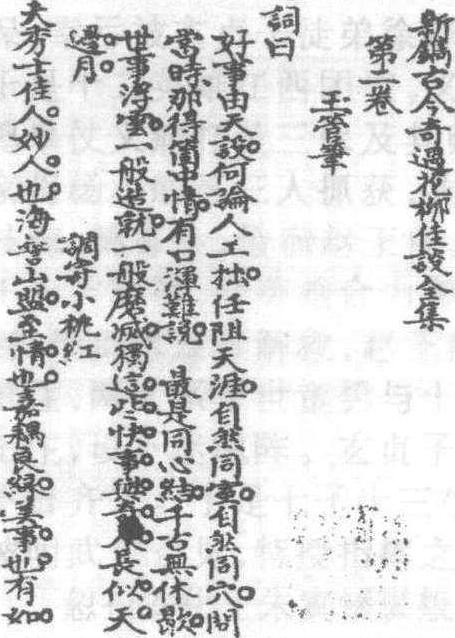 新鐫古今奇遇花柳佳談全集
第二卷
玉管筆
詞曰
好事由天設何論人工拙任阻天涯自然同室自然同穴開
當時那得箇中情有口渾難說　最是同心結千古無休歇
世事浮雲一般造就一般磨滅獨這些快事與奇人長似天
邊月　調寄小桃紅
夫秀士佳人妙人也海誓山盟至情也嘉耦良緣美事也有如